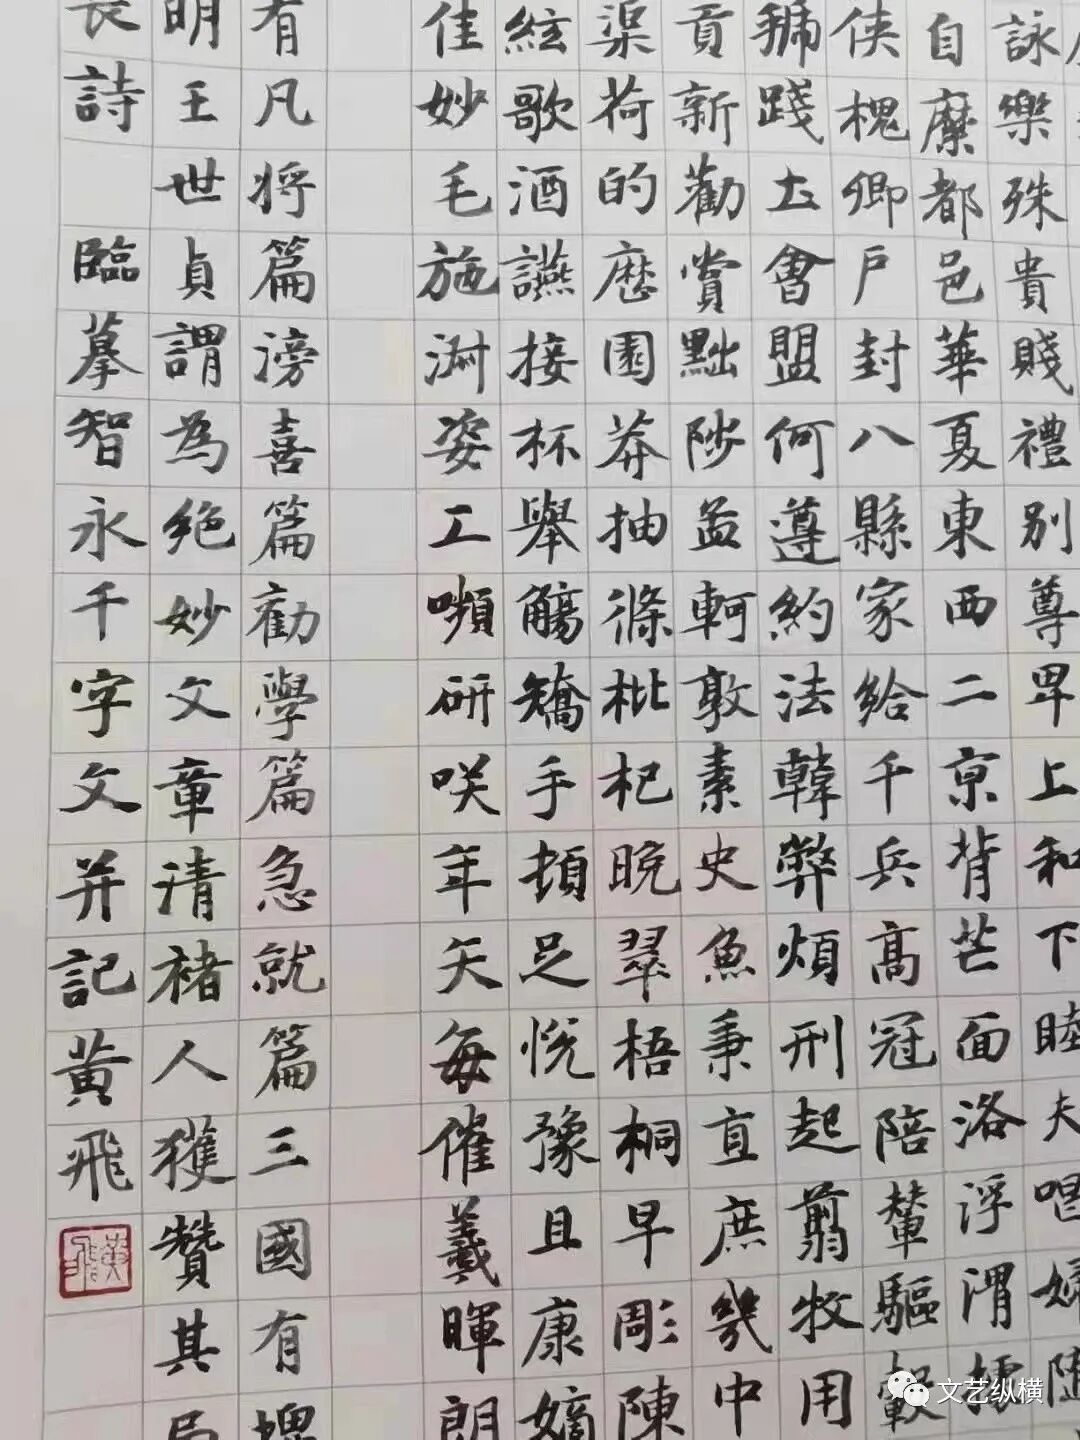 詠樂殊貴賤禮別尊卑上和下睦夫唱婦隨
自縻都邑華夏東西二京背芒面洛浮渭據
俠槐卿戶封八縣家給千兵高冠陪輦驅轂
號踐土會盟何遵約法韓弊煩刑起翦牧用
貢新勸賞黜陟孟軻敦素史魚秉直庶幾中
渠荷的歷園莽抽條枇杷晚翠梧桐早彫陳
絃歌酒讌接杯舉觴矯手頓足悅豫且康嫡
佳妙毛施淑姿工嚬研咲年矢每催羲暉朗
有凡将篇滂喜篇勸學篇急就篇三國有
明王世貞謂為絶妙文章清褚人獲贊其
長詩 臨摹智永千字文并記黃飛
黃飛
文艺纵横